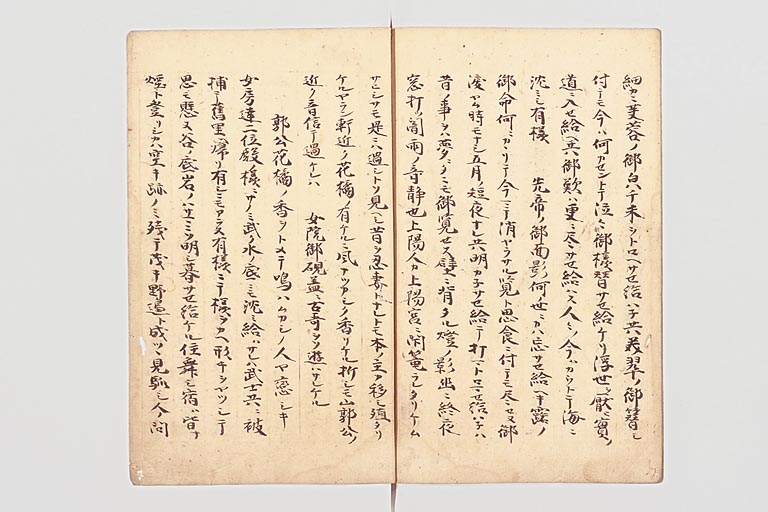 細カニ芙蓉ノ御白ハ千未シトロヘサセ給ハ子共翡翠ノ御簪ニ
付テモ今ハ何カセントテ泣々御様替サセ給ケリ浮世ヲ厭ヒ實ノ
道ニ入セ給ヘ共御歎ハ更ニ尽サセ給ハス人々ノ今ハカウトテ海ニ
沈ミシ有様 先帝ノ御面影何ノ世ニカハ忘サセ給ヘキ露ノ
御命何ニカヽリテ今ニテ消ヤラサル覧ト思食ニ付テモ尽セヌ御
涙ヤム時モナシ五月ノ短夜ナレ共明カ子サセ給テ打マトロマセ給ハ子ハ
昔ノ事ヲハ夢ニタニモ御覧セス壁ニ背タル燈ノ影幽ニ終夜
窓打ツ闇雨ノ音静也上陽人カ上陽宮ニ閉篭ラレタリケム
サヒシサモ是ニハ過シトソ見ヘシ昔ヲ忍妻トナレトモ本ノ主ノ移シ殖タリ
ケルヤラン軒近ク花橘ノ有ケルニ風ナツカシク香リケル折シモ山郭公ノ
近ク音信テ過ケレハ 女院御硯蓋ニ古哥ヲソ遊ハサレケル
郭公花橘ノ香ヲトメテ鳴ハムカシノ人ヤ恋シキ
女房達二位殿ノ様ニサノミ武ク水ノ底ニモ沈ミ給ハサレハ武士共ニ被
捕テ舊里ニ帰リ有シニモアラヌ有様ニテ様ヲカヘ形チヲヤツシテ
思モ懸ヌ谷ノ底岩ノハサマニソ明シ暮サセ給ケル住舞シ宿ハ皆ナ
煙ト登リシカハ空キ跡ノミ残テ茂キ野邊ト成ツヽ見馴シ人ノ問